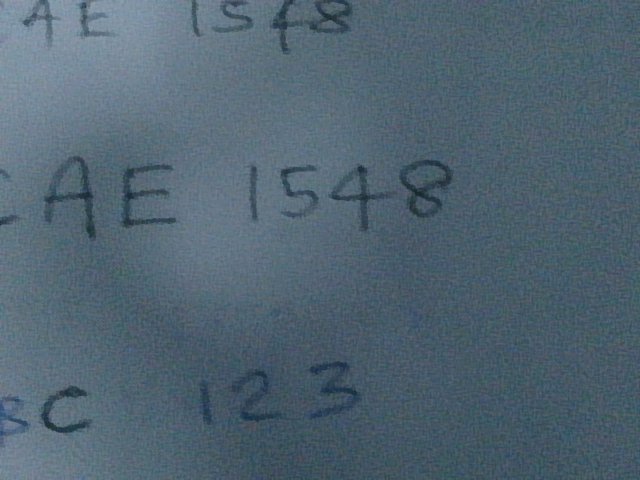 CAE 1548
CAE 1548
BC 123